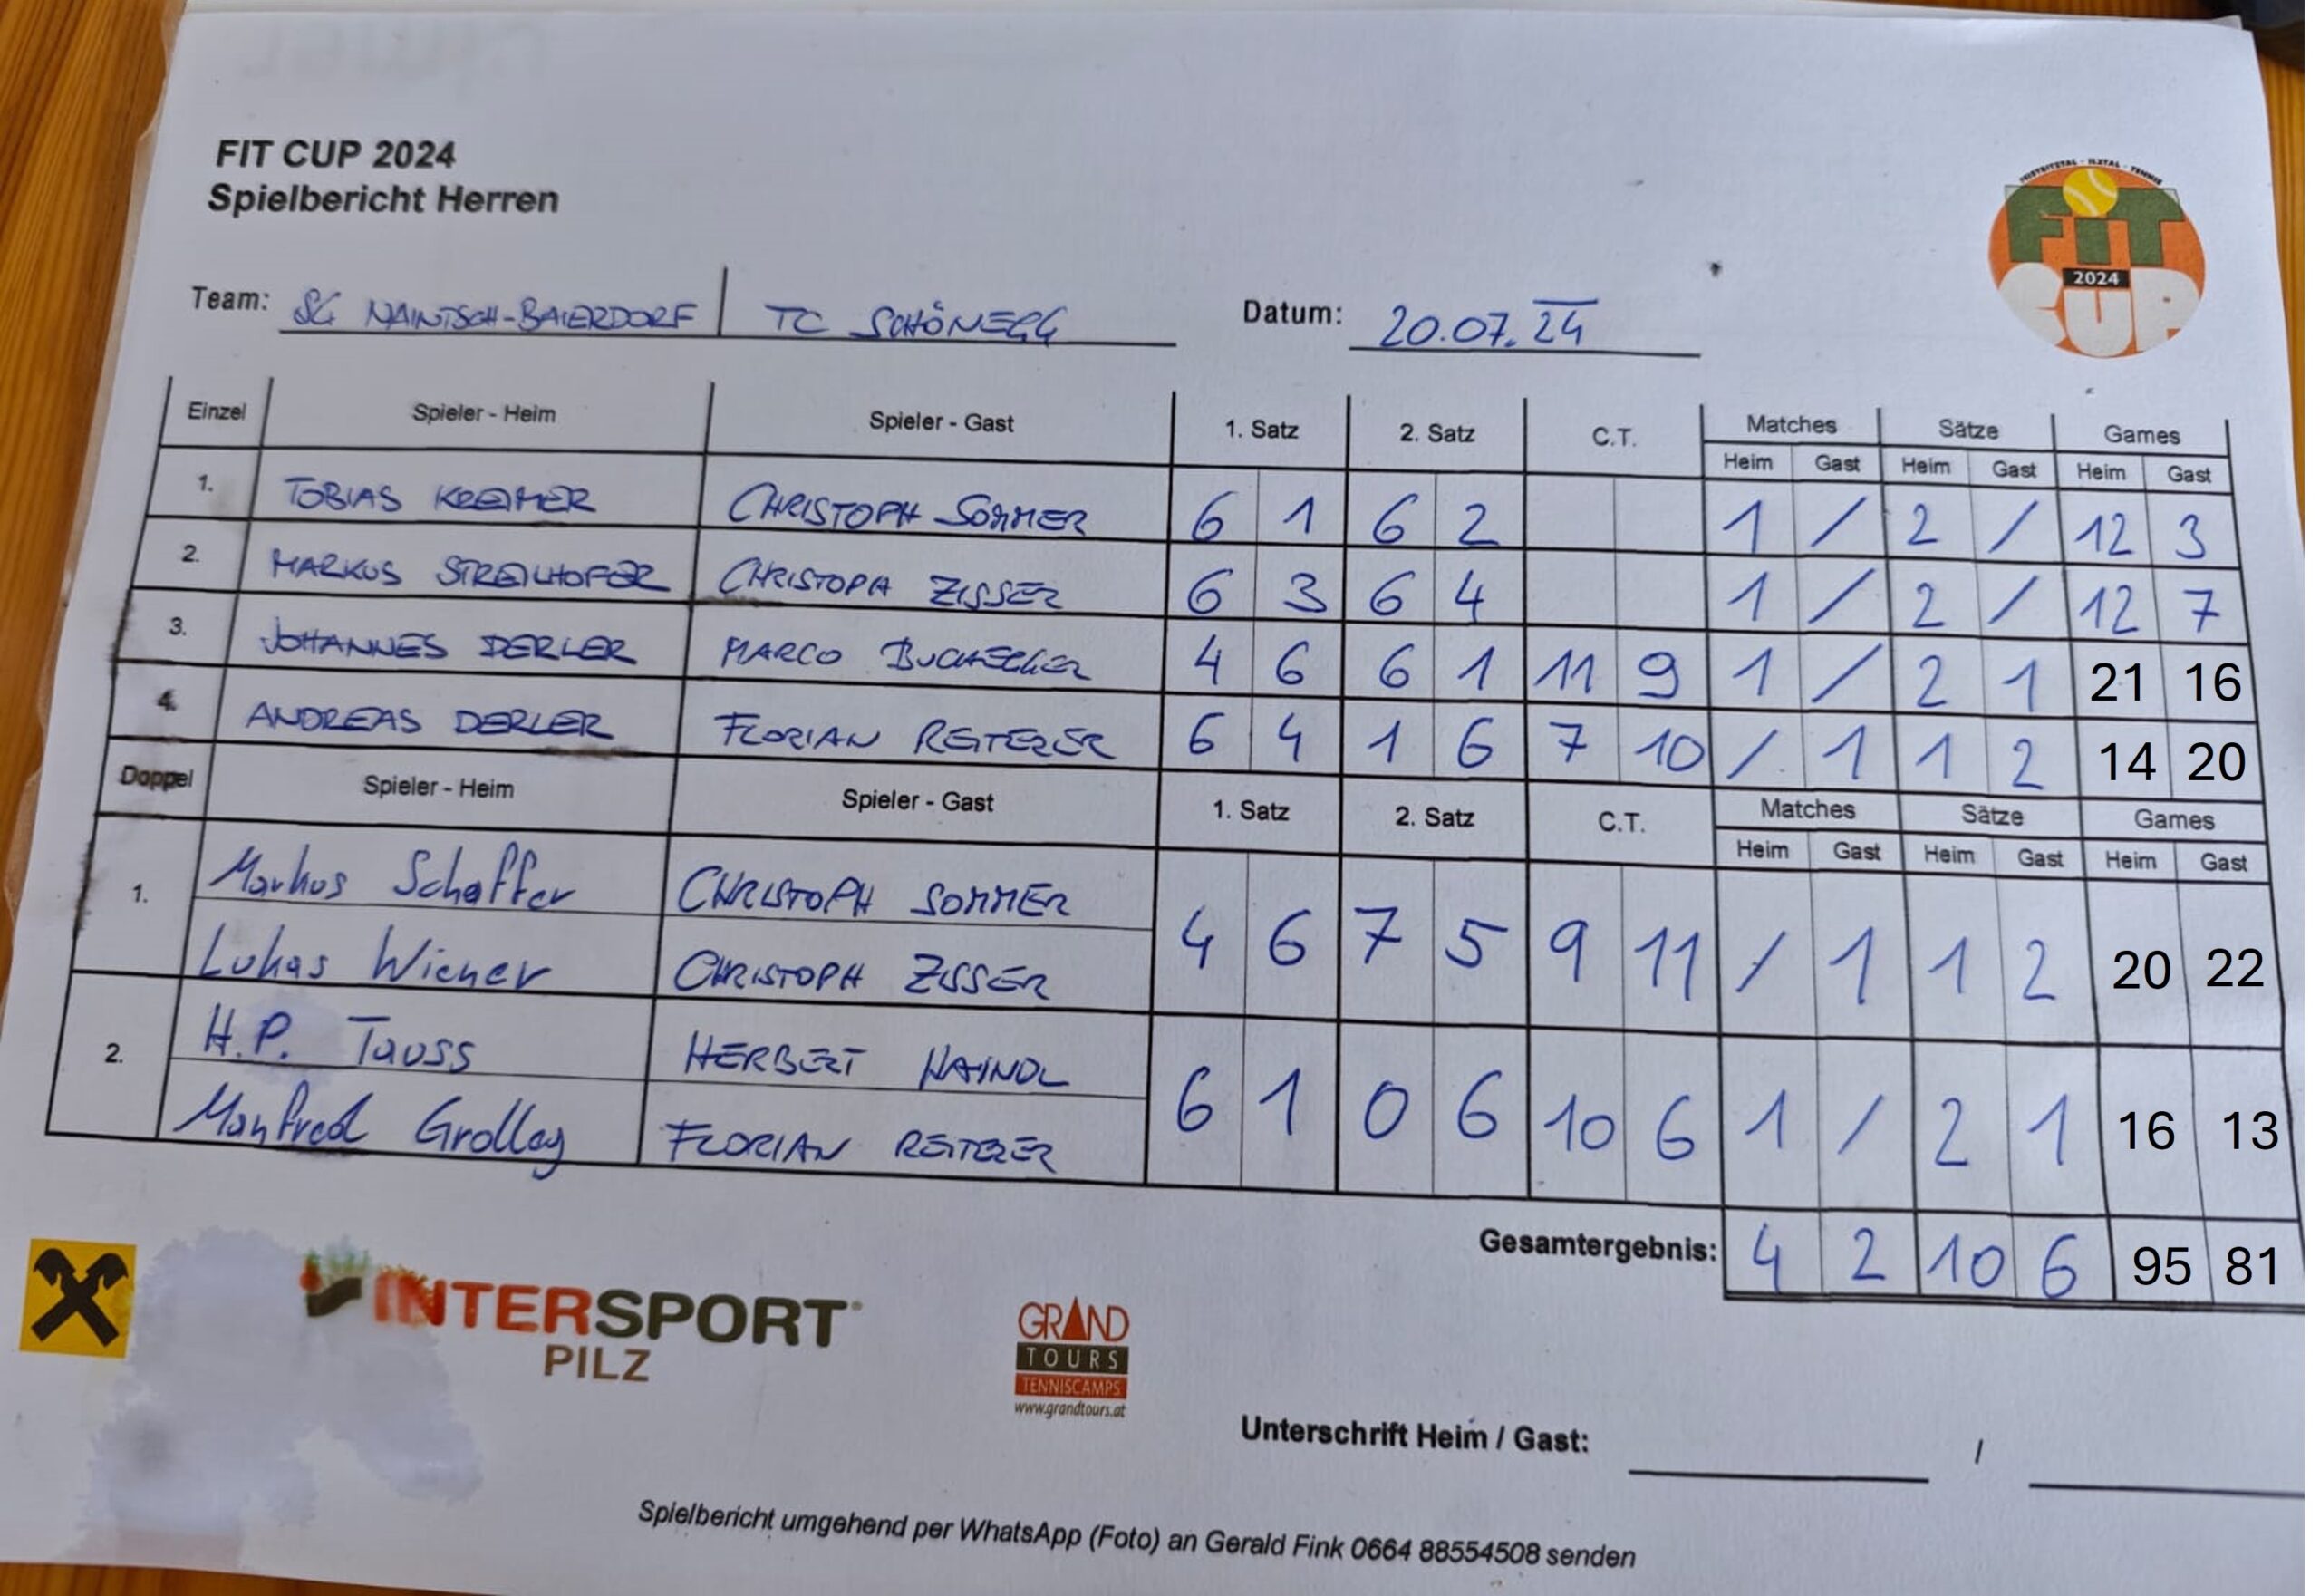 FIT CUP 2024
Spielbericht Herren
FEISTRITZTAL - ILZTAL - TENNIS
FiT
2024
CUP
Team: SG NAINTSCH-BAIERDORF | TC SCHÖNEGG Datum: 20.07.24
Einzel Spieler - Heim Spieler - Gast 1. Satz 2. Satz C.T. Matches Sätze Games
Heim Gast Heim Gast Heim Gast
1. TOBIAS KREIMER CHRISTOPH SOMMER 6 1 6 2 1 / 2 / 12 3
2. MARKUS STREILHOFER CHRISTOPH ZISSER 6 3 6 4 1 / 2 / 12 7
3. JOHANNES DERLER MARCO BUCHECKER 4 6 6 1 11 9 1 / 2 1 21 16
4. ANDREAS DERLER FLORIAN REITERER 6 4 1 6 7 10 / 1 1 2 14 20
Doppel Spieler - Heim Spieler - Gast 1. Satz 2. Satz C.T. Matches Sätze Games
Heim Gast Heim Gast Heim Gast
1. Markus Schaffer CHRISTOPH SOMMER 4 6 7 5 9 11 / 1 1 2 20 22
Lukas Wiener CHRISTOPH ZISSER
2. H.P. Tauss HERBERT HAINDL 6 1 0 6 10 6 1 / 2 1 16 13
Manfred Grolleg FLORIAN REITERER
Gesamtergebnis: 4 2 10 6 95 81
INTERSPORT
PILZ
GRAND
TOURS
TENNISCAMPS
www.grandtours.at
Unterschrift Heim / Gast: /
Spielbericht umgehend per WhatsApp (Foto) an Gerald Fink 0664 88554508 senden